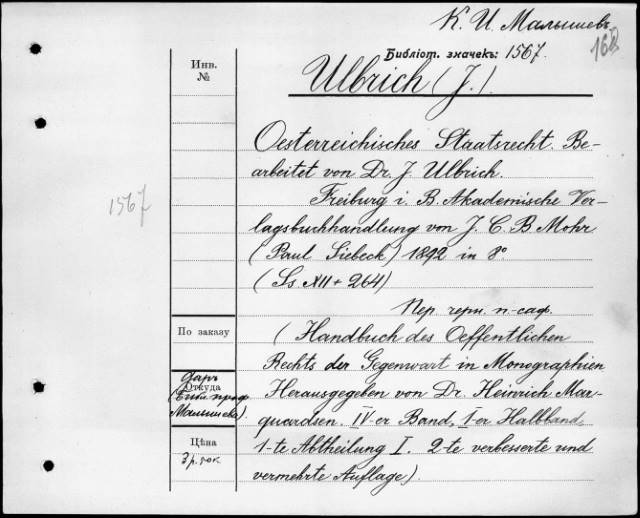 К. И. Малышевъ
168
Библіот. значекъ: 1567.
Ulbrich (J.)
Инв.
№
Oesterreichisches Staatsrecht. Be-
arbeitet von Dr. J. Ulbrich.
Freiburg i. B. Akademische Ver-
lagsbuchhandlung von J. C. B Mohr
(Paul Siebeck) 1892 in 8°
(Ss. XII + 264)
1567
Пер. черн. п-саф.
(Handbuch des Oeffentlichen
Rechts der Gegenwart in Monographien
Herausgegeben von Dr. Heinrich Mar-
quardsen. IV-er Band, 1-er Halbband,
1-te Abtheilung I. 2-te verbesserte und
vermehrte Auflage).
По заказу
Откуда
Даръ
(Библ. проф.
Малышева)
Цѣна
3 р.